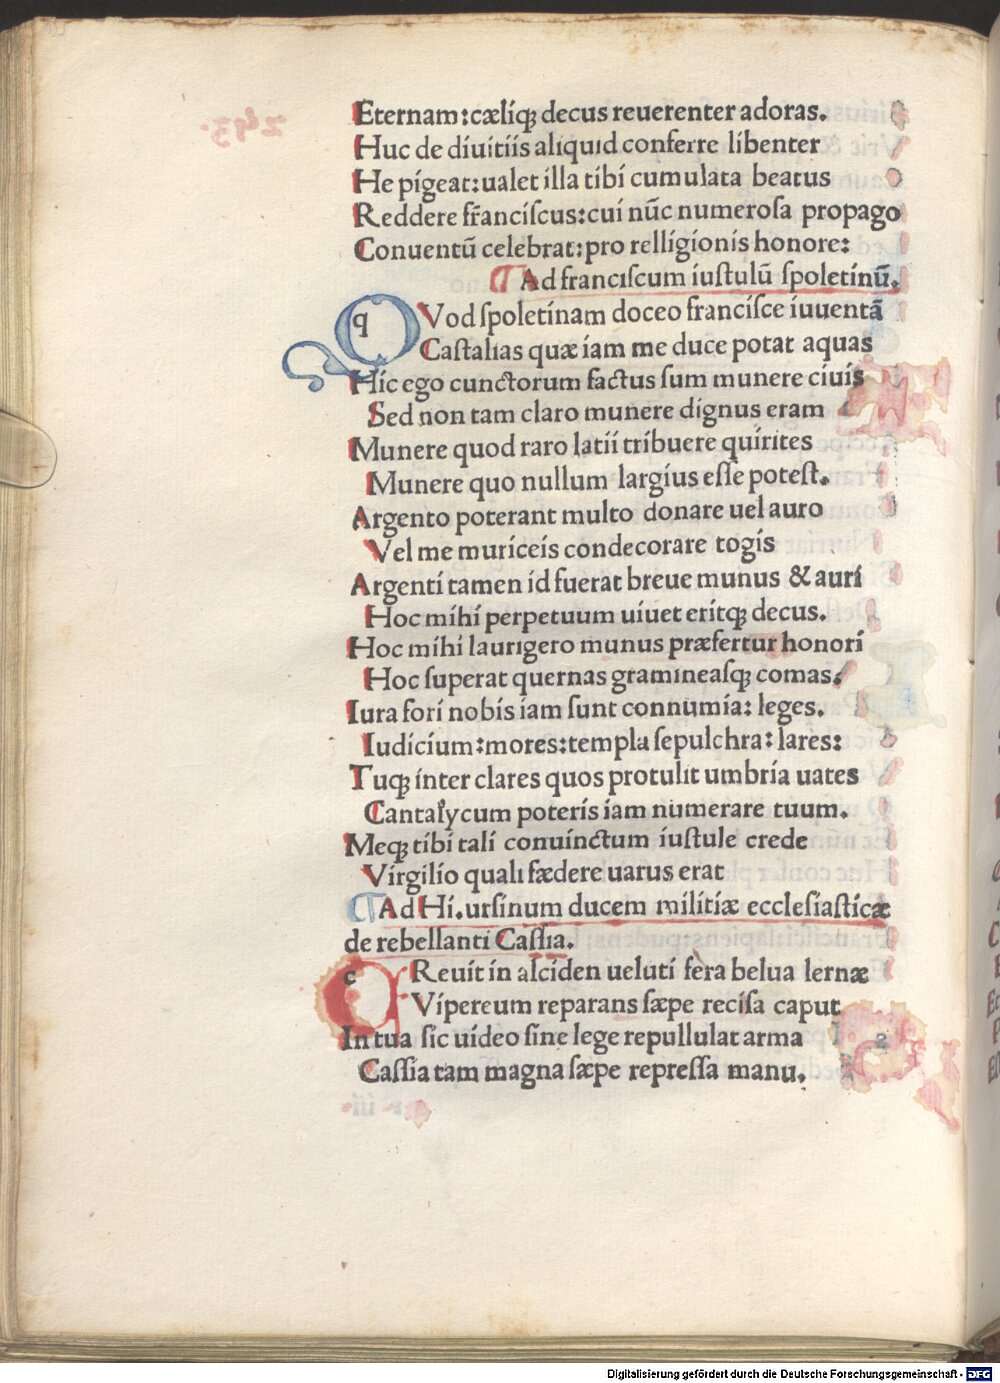 Eternam:cælíqꝫ decus reuerenter adoras.
Huc de díuitiis alíquid conferre libenter
He pigeat:ualet illa tibi cumulata beatus
Reddere frãnciſcus:cui nũc numeroſa propago
Conuentũ celebrat:pro relligionis honore:
¶ Ad franciſcum iuſtulũ ſpoletinũ.
q Vod ſpoletinam doceo franciſce iuuentã
Caſtalias quæ iam me duce potat aquas
Hic ego cunctorum factus ſum munere ciuis
Sed non tam claro munere dignus eram
Munere quod raro latii tribuere quirites
Munere quo nullum largius eſſe poteſt.
Argento poterant multo donare uel auro
Vel me muriceis condecorare togis
Argenti tamen id fuerat breue munus & auri
Hoc mihi perpetuum uiuet eritqꝫ decus.
Hoc mihi laurigero munus præfertur honori
Hoc ſuperat quernas gramineaſqꝫ comas.
Iura fori nobis iam ſunt connumia: leges.
Iudicium:mores:templa ſepulchra: lares:
Tuqꝫ inter clares quos protulit umbria uates
Cantalycum poteris iam numerare tuum.
Meqꝫ tibi tali conuinctum iuſtule crede
Virgilio quali fædere uarus erat
¶ Ad Hi.urſinum ducem militiæ eccleſiaſticæ
de rebellanti Caſſia.
c Reuit in alciden ueluti fera belua lernæ
Vipereum reparans ſæpe reciſa caput
In tua ſic uideo ſine lege repullulat arma
Caſſia tam magna ſæpe repreſſa manu.
Digitalisierung gefördert durch die Deutsche Forschungsgemeinschaft - DFG